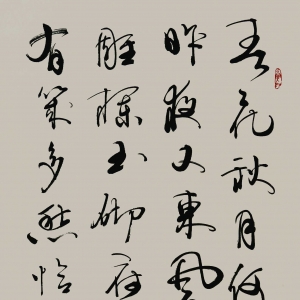 春花秋月何
昨夜又東風
雕欄玉砌應
有幾多愁恰